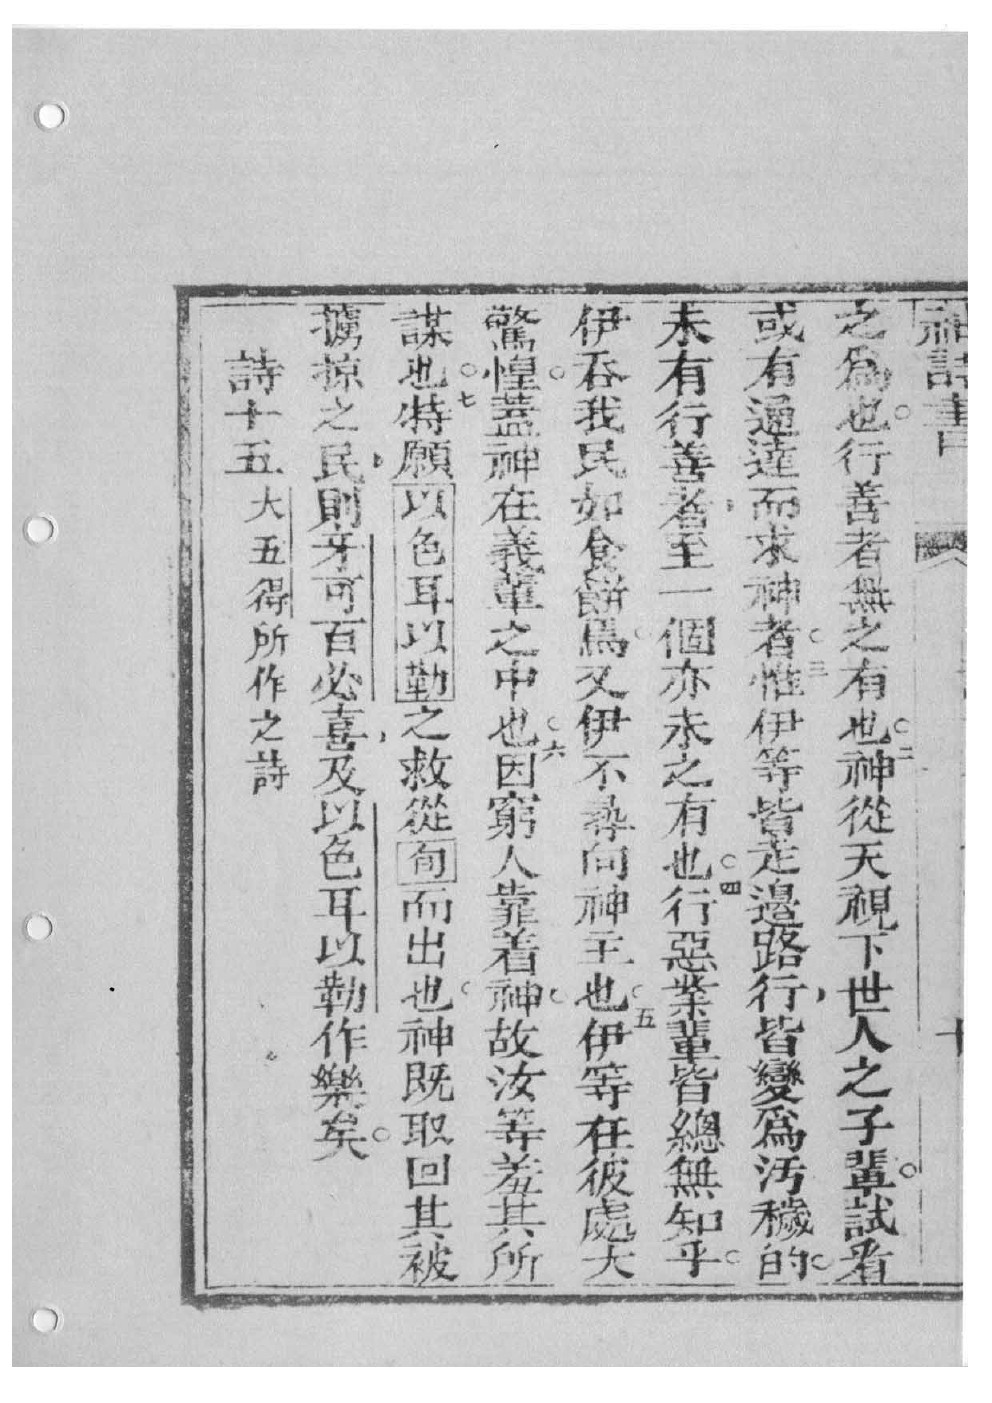 神詩書
之為也○行善者無之有也○二神從天視下世人之子輩○試看
或有通達而求神者○三惟伊等皆走邉路行皆變爲汚穢的○
未有行善者至一個亦未之有也○四行惡業輩皆總無知乎○
伊吞我民如食餅焉○又伊不尋向神主也○五伊等在彼處大
驚惶○葢神在義輩之中也○六因窮人靠着神○故汝等羞其所
謀也○七特願以色耳以勒之救從旬而出也○神既取回其被
擄掠之民則牙可百必喜及以色耳以勒作樂矣○
詩十五大五得所作之詩